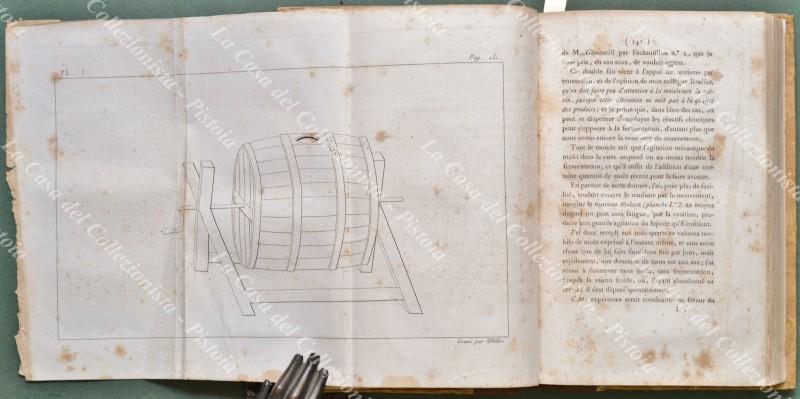 Pl.
Pag. 141.
Gravé par Müller
( 141 )
de M. par l'échantillon n.° 1, que je
vous prie, en son nom, de vouloir agréer.
Ce double fait vient à l'appui du mutisme par
et de l'opinion de mon collègue Serullas,
qu'on doit faire peu d'attention à la moisissure du
puisque cette altération ne nuit pas à la qualité
des produits; et je pense que, dans bien des cas, on
peut se dispenser d'employer les réactifs chimiques
pour s'opposer à la fermentation, d'autant plus que
nous avons encore la ressource du mouvement.
Tout le monde sait que l'agitation mécanique du
moût dans la cuve suspend ou au moins trouble la
fermentation, et qu'il suffit de l'addition d'une certaine
quantité de moût récent pour la faire avorter.
En partant de cette donnée, j'ai, pour plus de facilité,
voulant essayer le mutisme par le mouvement,
imaginé le tonneau (planche I.re), au moyen
duquel on peut sans fatigue, par la rotation, produire
une grande agitation du liquide qu'il contient.
J'ai donc rempli aux trois quarts ce vaisseau mobile
de moût exprimé à l'instant même, et sans autre
chose que de lui faire faire deux fois par jour, mais
rapidement, une douzaine de tours sur son axe; j'ai
réussi à conserver mon moût, sans fermentation,
jusqu'à la saison froide, où, l'ayant abandonné au
il s'est dépuré spontanément.
Cette expérience serait concluante en faveur du
La Casa del Collezionista - Pistoia